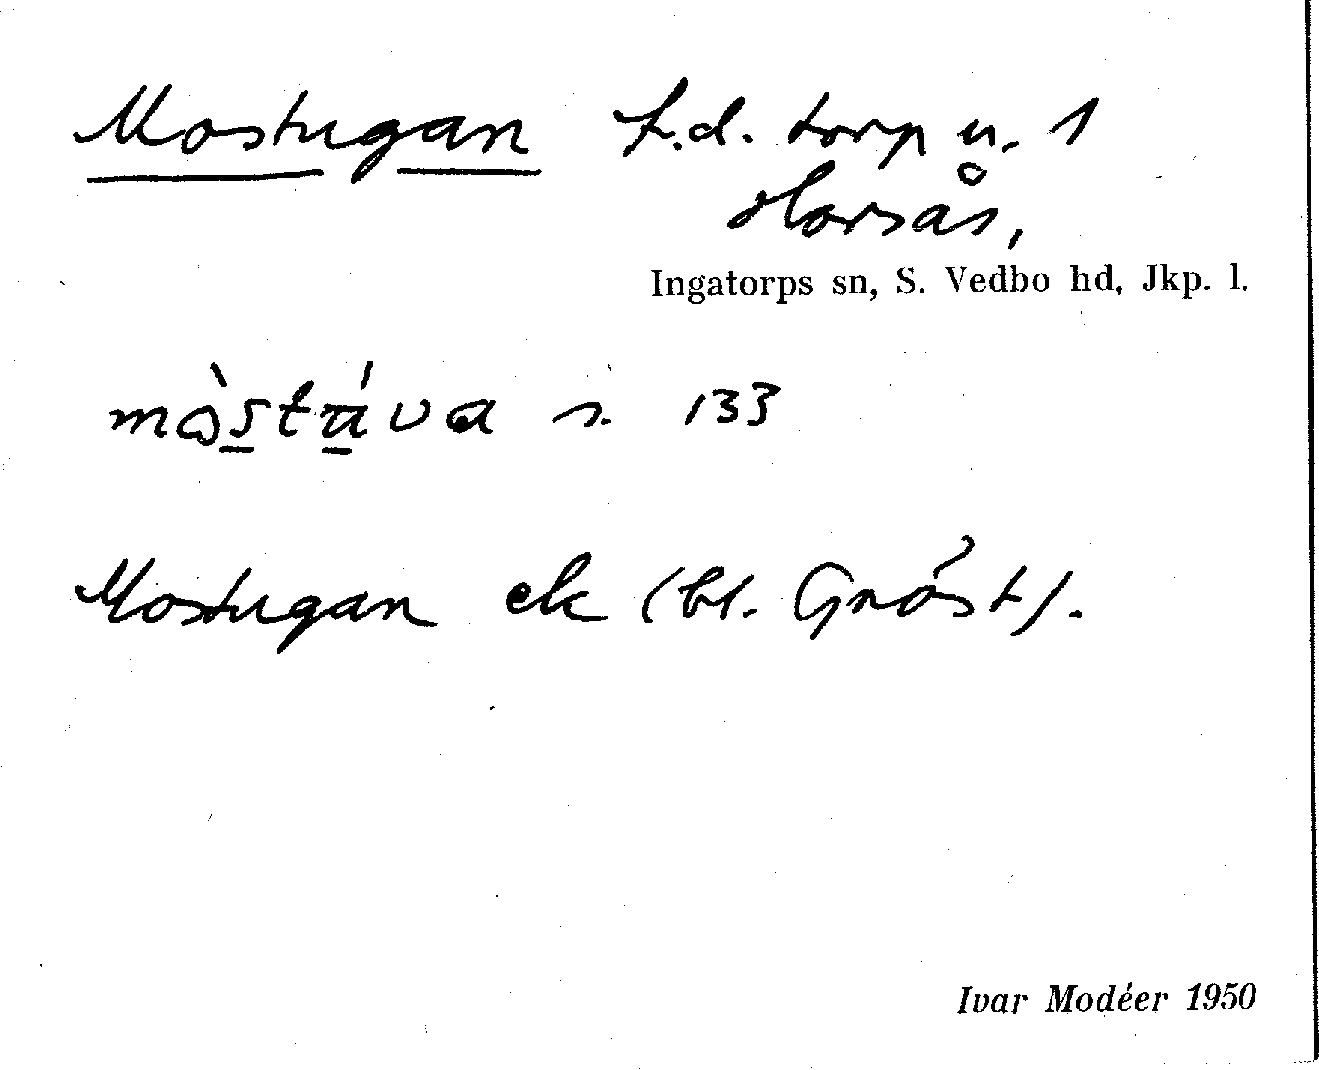 Mostugan f.d. torp u. 1
Horsås,
Ingatorps sn, S. Vedbo hd, Jkp. l.
s. 133
Mostugan ek (bl. Gnöst).
Ivar Modéer 1950